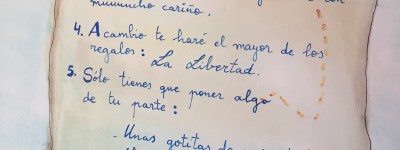 muuuucho cariño.
4. A cambio te haré el mayor de los
regalos: La Libertad.
5. Sólo tienes que poner algo
de tu parte:
- Unas gotitas de